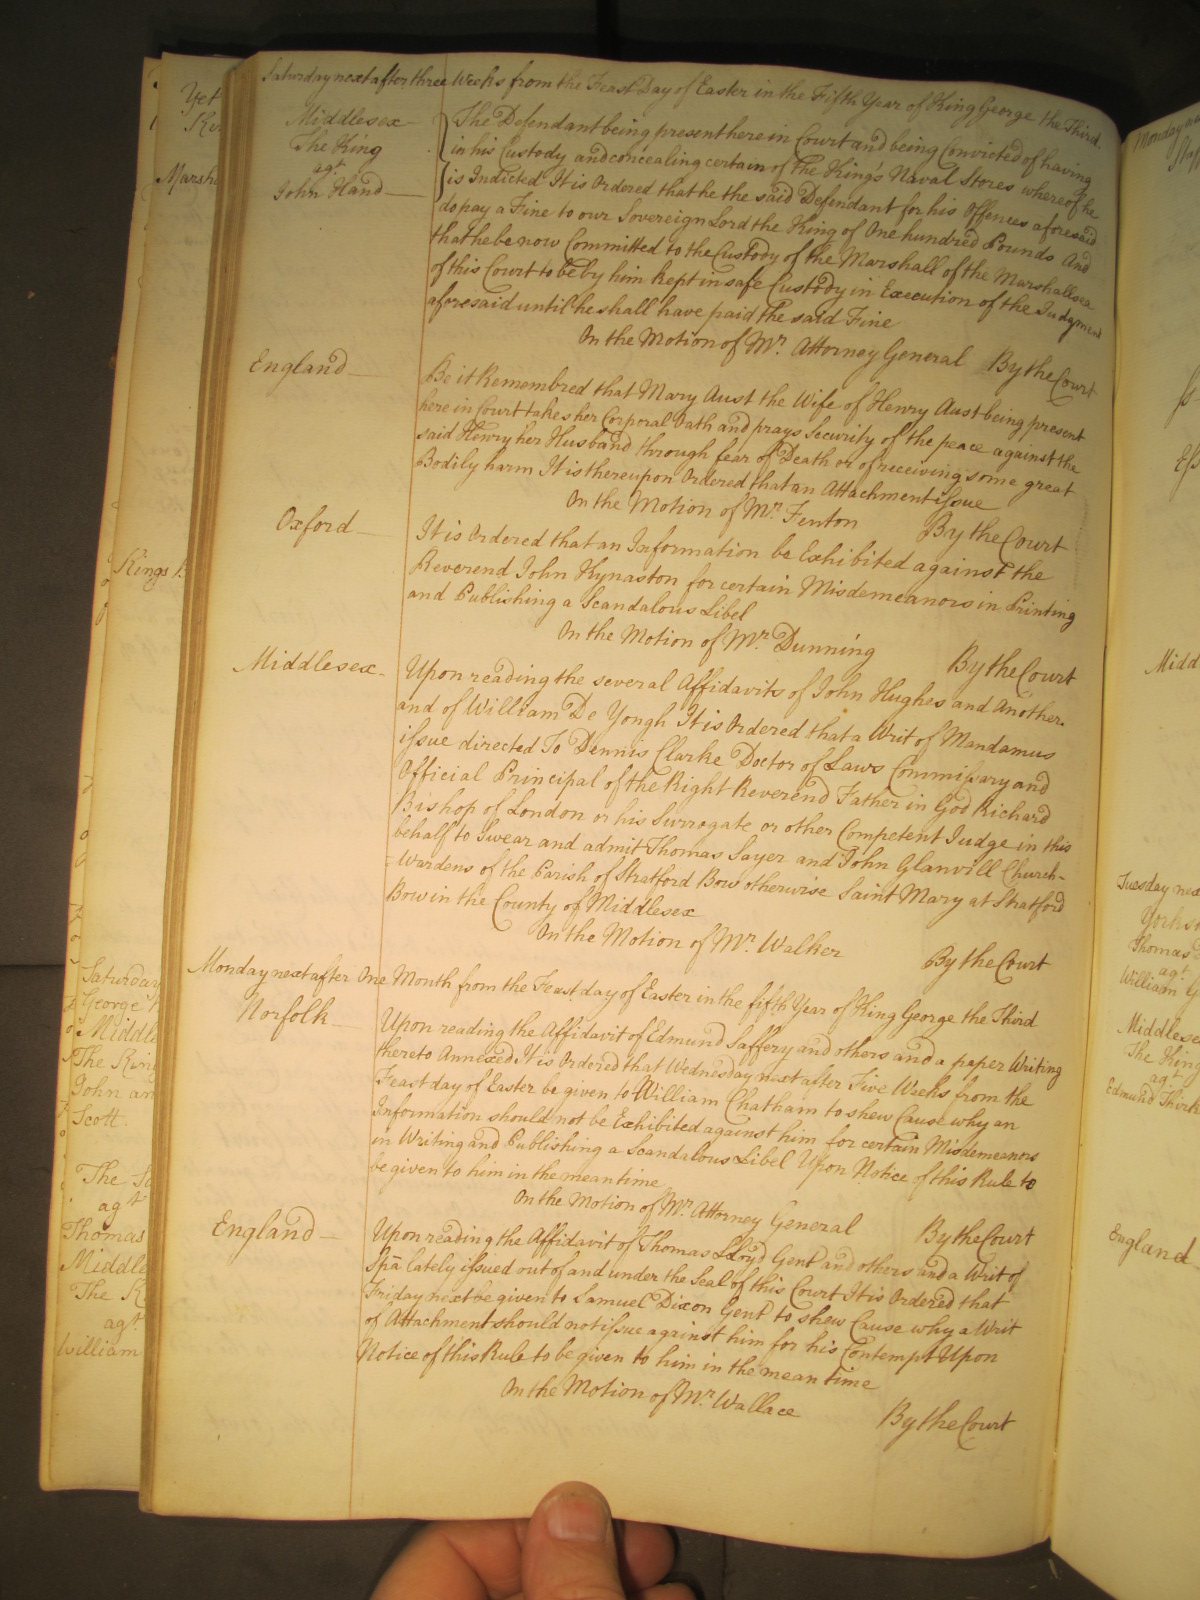 Saturday next after three Weeks from the Feast Day of Easter in the Fifth Year of King George the Third.
Middlesex
The King
agt
John Hand
The Defendant being present here in Court and being Convicted of having
in his Custody and concealing certain of the King's Naval Stores whereof he
is Indicted It is Ordered that he the said Defendant for his Offences aforesaid
do pay a Fine to our Sovereign Lord the King of One hundred Pounds And
that he be now Committed to the Custody of the Marshall of the Marshallsea
of this Court to be by him kept in safe Custody in Execution of the Judgment
aforesaid until he shall have paid the said Fine
On the Motion of Mr. Attorney General By the Court
England
Be it Remembred that Mary Aust the Wife of Henry Aust being present
here in Court takes her Corporal Oath and prays Security of the peace against the
said Henry her Husband through fear of Death or of receiving some great
Bodily harm It is thereupon Ordered that an Attachment issue
On the Motion of Mr. Fenton By the Court
Oxford
It is Ordered that an Information be Exhibited against the
Reverend John Kynaston for certain Misdemeanors in Printing
and Publishing a Scandalous Libel
On the Motion of Mr. Dunning By the Court
Middlesex
Upon reading the several Affidavits of John Hughes and Another
and of William De Yongh It is Ordered that a Writ of Mandamus
issue directed To Dennis Clarke Doctor of Laws Commissary and
Official Principal of the Right Reverend Father in God Richard
Bishop of London or his Surrogate or other Competent Judge in this
behalf to Swear and admit Thomas Sayer and John Glanvill Church-
=Wardens of the Parish of Stratford Bow otherwise Saint Mary at Stratford
Bow in the County of Middlesex
On the Motion of Mr. Walker By the Court
Monday next after One Month from the Feast day of Easter in the fifth Year of King George the Third
Norfolk
Upon reading the Affidavit of Edmund Saffery and others and a paper Writing
thereto Annexed It is Ordered that Wednesday next after Five Weeks from the
Feast day of Easter be given to William Chatham to shew Cause why an
Information should not be Exhibited against him for certain Misdemeanors
in Writing and Publishing a Scandalous Libel Upon Notice of this Rule to
be given to him in the mean time
On the Motion of Mr. Attorney General By the Court
England
Upon reading the Affidavit of Thomas Lloyd Gent and others and a Writ of
Spā lately issued out of and under the Seal of this Court It is Ordered that
Friday next be given to Samuel Dixon Gent to shew Cause why a Writ
of Attachment should not issue against him for his Contempt Upon
Notice of this Rule to be given to him in the mean time
On the Motion of Mr. Wallace By the Court
Yet
Marsh
Kings B
Saturday
George
Middle
The King
John an
Scott
The
agt
Thomas
Middle
The K
agt
William
Monday
Midd
Tuesday nex
Yorks
Thomas
agt
William G
Middlesex
The King
agt
Edmund Thirk
England